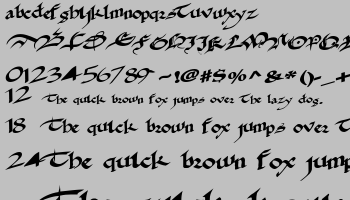 abcdefghijklmnopqrstuvwxyz
ABCDEFGHIJKLMNOPQR
0123456789 ~!@#$%^&*()-_+
12 The quick brown fox jumps over the lazy dog.
18 The quick brown fox jumps over the
24 The quick brown fox jump
The quick brown